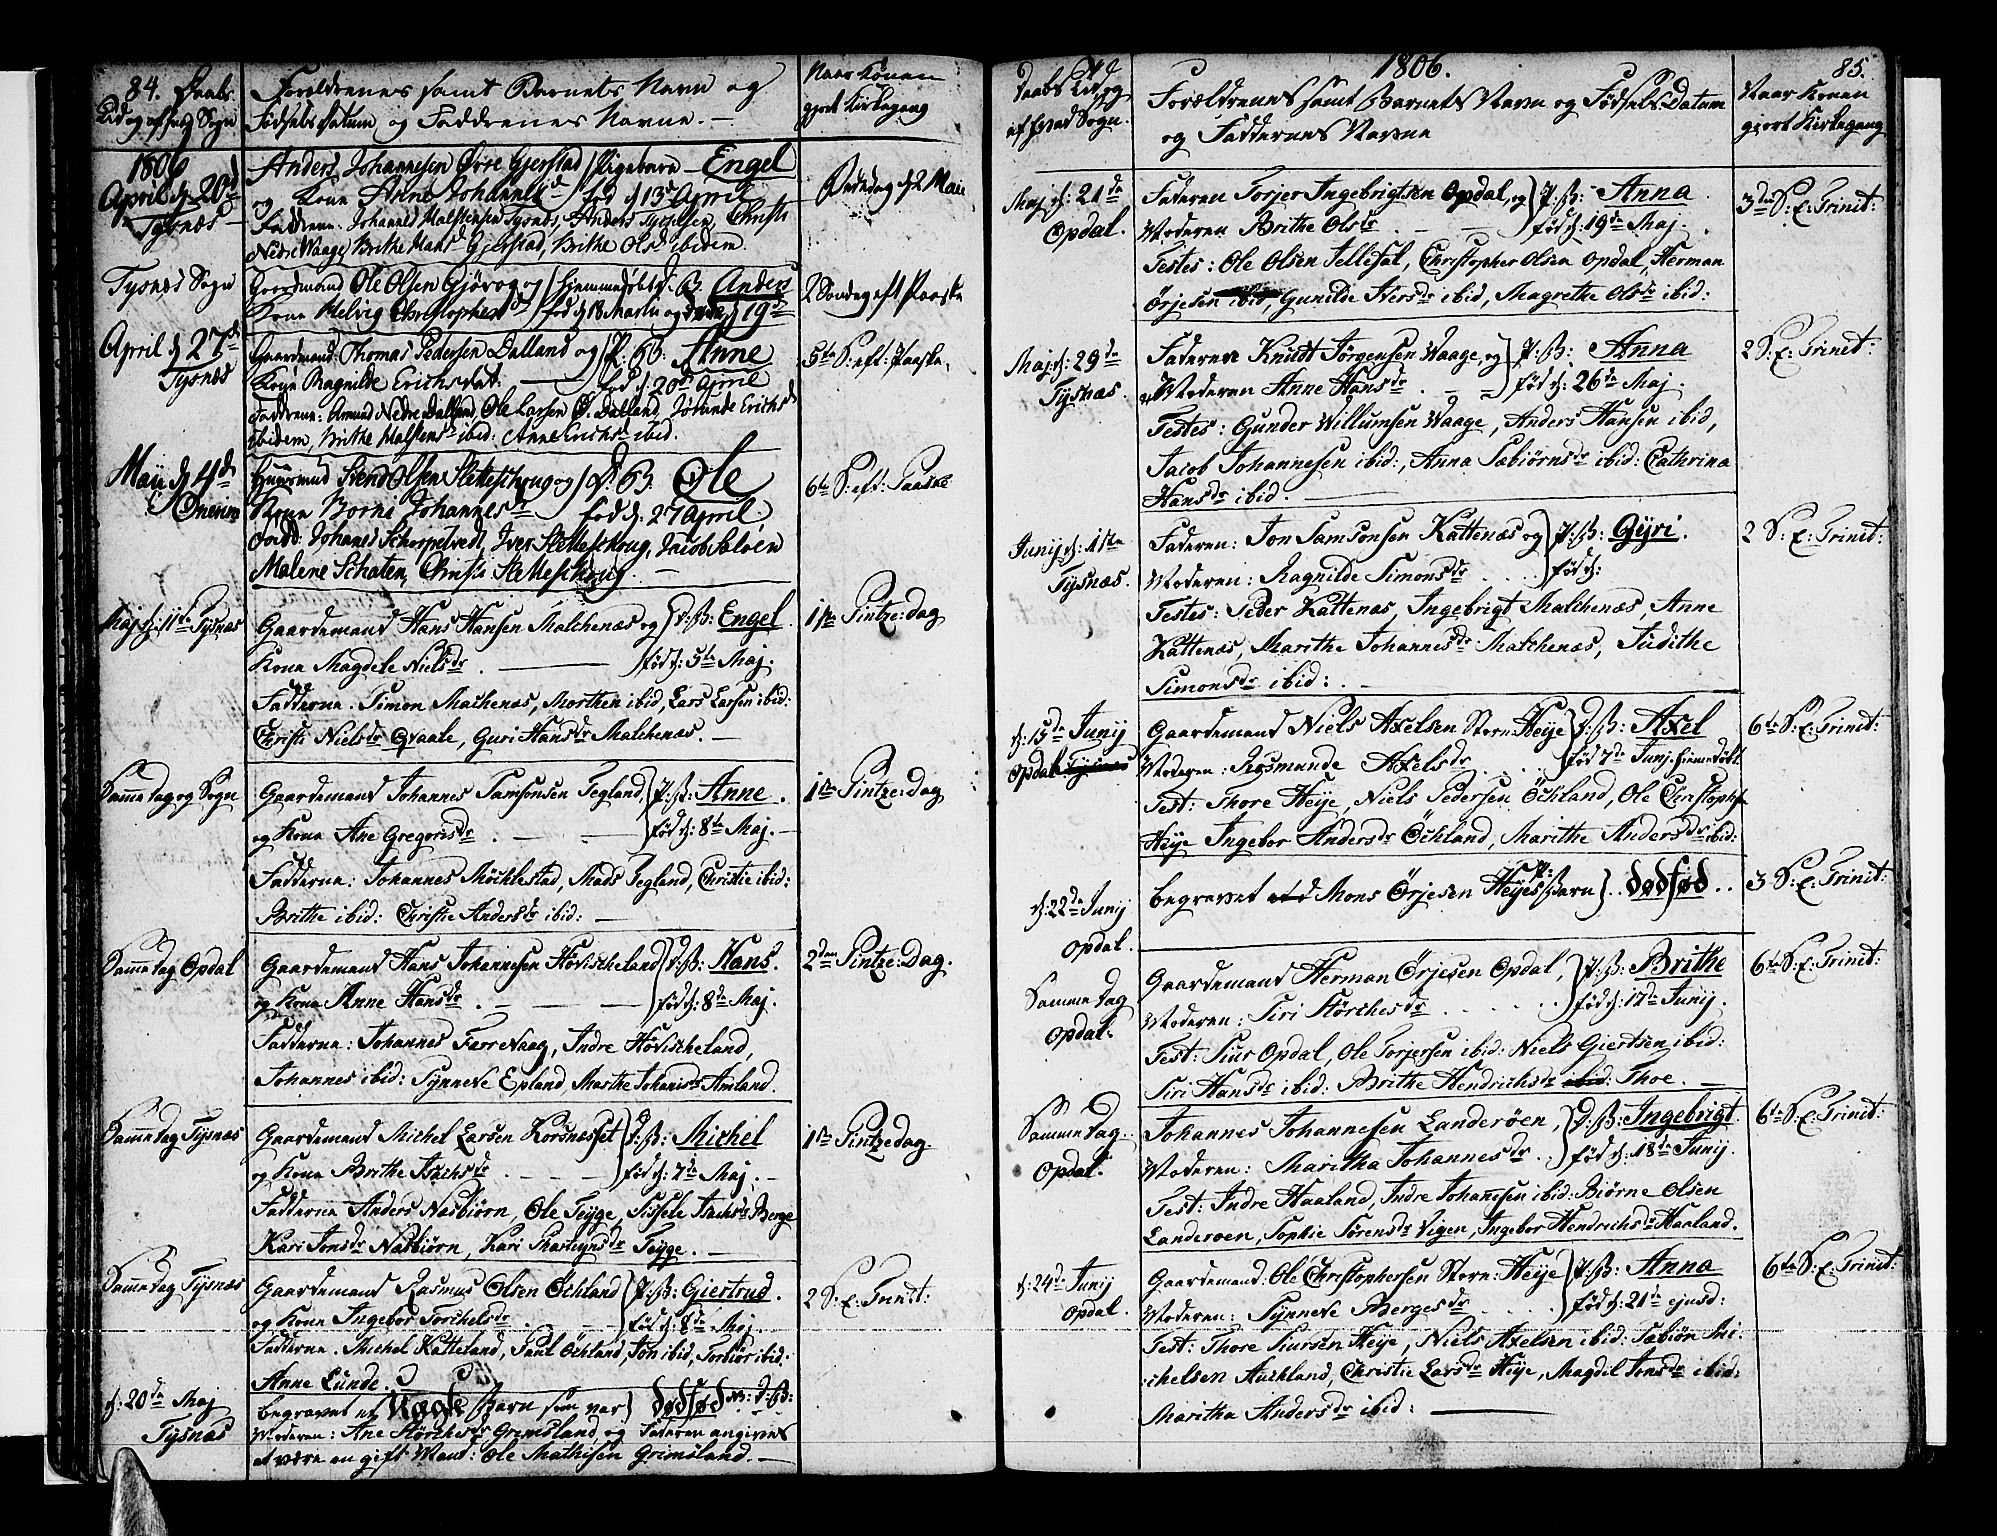 84. Daabs
Tid og af hvad Sogn
Forældrenes samt Barnets Navn og
Fødsels Datum og Faddrenes Navne. —
Naar Konen
gjort Kirkegang
1806
April d. 20de
Tysnæs
Anders Johannesen Øvre Gjerstad) Pigebarn Engel
og Kone Anne Johannesd. fød d. 13de April
Faddrene: Johannes Halstensen Tysnæs, Anders Christi
Nedre Waage, Brithe Hansd. Gjerstad, Brithe Olsd. ibidem
Tysnæs Sogn
Gaardmand Ole Olsen og hjemmedøbt D. B. Anders
Kone Helvig Christophersd. fød d. 18 Martii og d. 19de
2 Søndag eft Paaske
April d 27de
Tysnæs
Gaardmand Thomas Pedersen Dalland og P: B: Anne
Kone Ragnilde Erichsdat. fød d. 20de April
Faddrene: Amund Nedre Dalland, Ole Larsen Ø. Dalland, Jørande Erichsd
ibidem, Brithe Halstensd ibid: Anne Erichsd ibid.
5te S: eft: Paaske.
Maii d 4de
Onerim
Huusmand Svend Olsen Sletteschrug og) D. B. Ole
Kone Borna Johannesd fød d. 27 April
Fadd: Johannes Schorpetvedt, Iver Sletteschrug, Jacob Saløen
Malene Schaten, Christi Sletteschrug. —
6te S: eft: Paaske
Maj d: 11te Tysnæs
Gaardemand Hans Hansen Malchenæs og) P: B: Engel.
Kone Magdele Nielsdr. fød d: 5te Maj.
Fadderne. Simon Malchenæs, Morthen ibid, Lars Larsen ibid:
Christi Nielsdr Qvaale, Guri Hansdr Malchenæs. —
1ste Pintze: Dag
Samme Dag og Sogn
Gaardemand Johannes Samsonsen Tegland, P: B: Anne.
og Kone Ane Gregorisdr. fød d: 8de Maj.
Fadderne: Johannes Möchlestad, Mads Tegland, Christie ibid:
Brithe ibid: Christie Andersdr ibid: —
1ste Pintze: Dag
Samme Dag Opdal
Gaardemand Hans Johannesen Hövischeland D: B: Hans.
og Kone Anne Hansdr. fød d: 8de Maj.
Fadderne: Johannes Færrevaag, Indre Hövischeland,
Johannes ibid: Synneve Epland, Marthe Johanisdr Amland.
2den Pintze: Dag.
Samme Dag Tysnæs
Gaardemand Michel Larsen Korsnæsset D: B: Michel
og Kone Brithe Isachsdr. fød d: 7de Maj. —
Fadderne Anders Nasbiörn, Ole Teyge, Sissele Isachsdr Berge
Kari Jonsdr Nasbiörn, Kari Teyge. —
1ste Pintzedag.
Samme Dag Tysnæs
Gaardemand Rasmus Olsen Öchland P: B: Giertrud.
og Kone Ingebor Torchelsdr. fød d: 8de Maj.
Fadderne. Michel Katteland, Paul Öchland, Jon ibid, Torbiör ibid.
Anne Lunde.
2 S: E: Trinit:
d: 20de Maj
Tysnæs
begravet et Uægte Barn som var) dødfød D: B:
Moderen: Ane Störchsdr Grimsland, og Faderen angives
at være en gift Mand: Ole Mathisen Grimsland. —
1806.
85.
Daabs Tid og
af hvad Sogn.
Forældrenes samt Barnets Navn og Fødsels Datum
og Faddernes Navne
Naar Konen
gjort Kirkegang
Maj d: 21de
Opdal.
Faderen Torjer Ingebrigtsen Opdal, og) P: B: Anna
Moderen Brithe Olsdr. fød d: 19de Maj.
Testes: Ole Olsen Tellefal, Christopher Olsen Opdal, Herman
Örjesen ibid, Gunilde Iversdr ibid, Magrethe Olsdr ibid:
3die S: E: Trinit:
Maj d: 29de
Tysnæs.
Faderen Knudt Jörgensen Waage, og) P: B: Anna
Moderen Anne Hansdr. fød d: 26de Maj.
Testes: Gunder Willumsen Waage, Anders Hansen ibid,
Jacob Johannesen ibid:, Anna Sæbiörnsdr ibid: Cathrina
Hansdr ibid. —
2 S: E: Trinit:
Junij d: 1ste
Tysnæs.
Faderen: Jon Samsonsen Kattenæs og) P: B: Gyri.
Moderen: Ragnilde Simonsdr. fød d:
Testes: Peder Kattenæs, Ingebrigt Malchenæs, Anne
Kattenæs, Marithe Johannesdr Malchenæs, Judithe
Simonsdr ibid: —
2 S: E: Trinit:
d: 15de Junij
Opdal Tysnæs
Gaardemand Niels Axelsen Store: Heije) D: B: Axel
Moderen: Rosmunde Axelsdr. fød 7de Junij hiemmedöbt
Test: Thore Heije, Niels Pedersen Öchland, Ole Christophs
Heije Ingebor Andersdr Öchland, Marithe Andersdr ibid:
6te S: E: Trinit:
d: 22de Junij
Opdal.
begravet Mons Örjesen Heijes Barn) dødfød
3 S: E: Trinit:
Samme Dag
Opdal.
Gaardemand Herman Örjesen Opdal, P: B: Brithe
Moderen: Siri Störchesdr. fød d: 17de Junij.
Test: Siur Opdal, Ole Torjersen ibid: Niels Giertsen ibid:
Siri Hansdr ibid: Brithe Hendrichsdr ibid: Thoe. —
6te S: E: Trinit:
Samme Dag.
Opdal.
Johannes Johannesen Landeröen, D: B: Ingebrigt
Moderen: Maritha Johannesdr. fød d: 18de Junij.
Test: Indre Haaland, Indre Johannesen ibid: Biörne Olsen
Landeröen, Sophie Sörensdr Vigen, Ingebor Hendrichsdr Haaland.
6te S: E: Trinit:
d: 24de Junij
Opdal.
Gaardemand: Ole Christophersen Store: Heije) P: B: Anna
Moderen: Synneve Bergesdr. fød d: 21de ejusd:
Test: Thore Siursen Heije, Niels Axelsen ibid: Sæbiön Mi-
chelsen Auchland, Christie Larsdr Heije, Magdel Jonsdr ibid:
Maritha Andersdr ibid: —
6te S: E: Trinit: